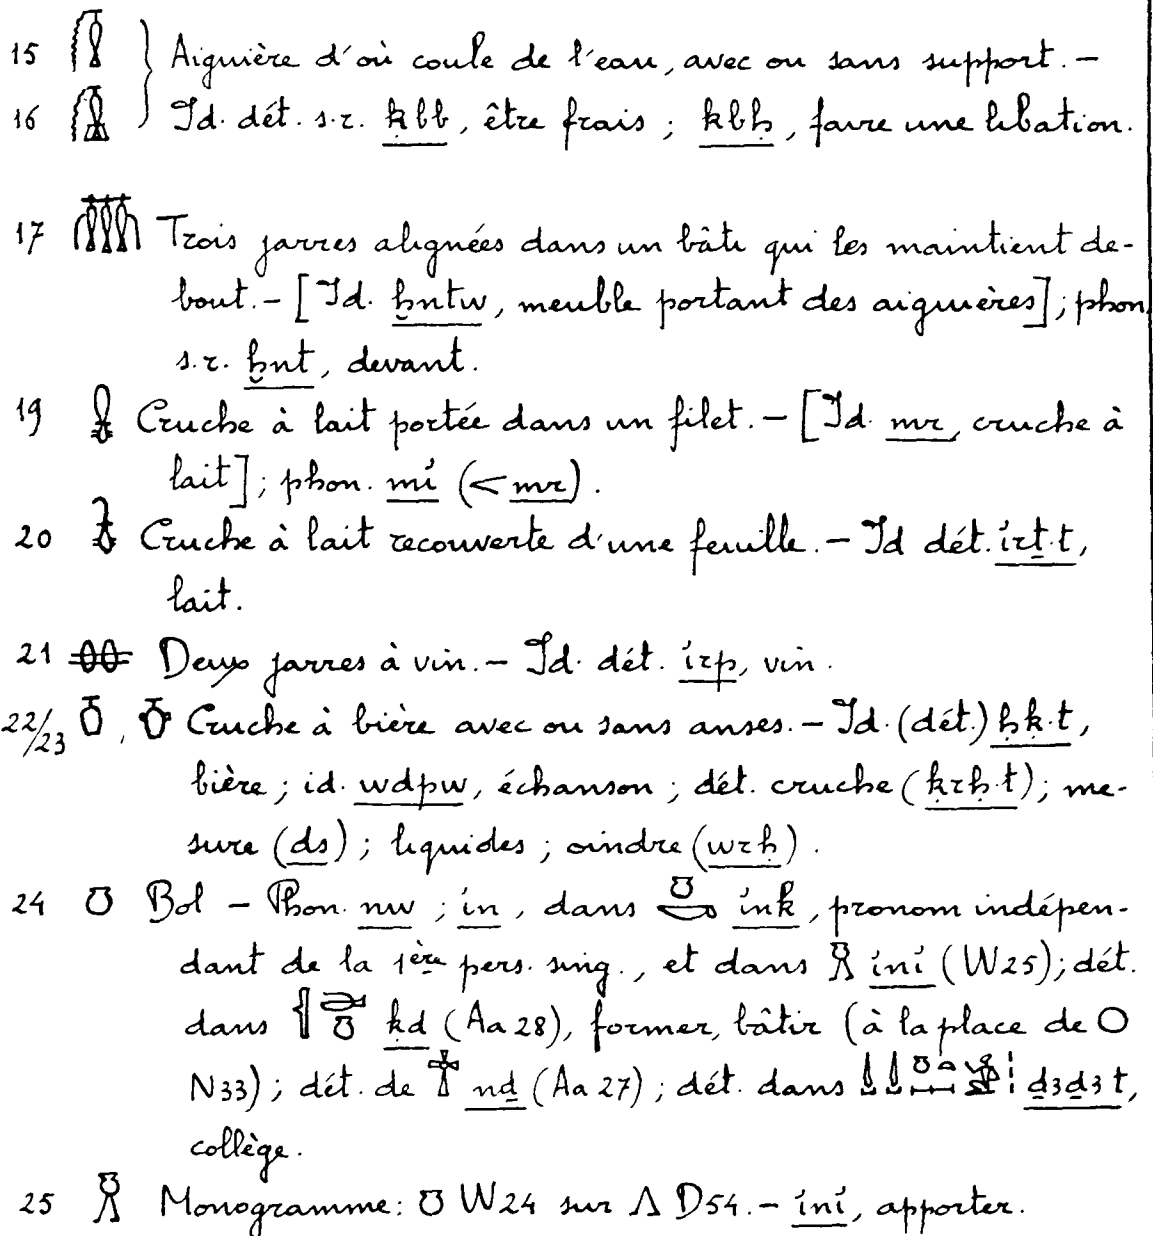 15 𓏁 } Aiguière d'où coule de l'eau, avec ou sans support. –
16 𓏂 } Id. dét. s.r. ḳbb, être frais ; ḳbḥ, faire une libation.
17 𓏃 Trois jarres alignées dans un bâti qui les maintient de-
bout. – [Id. ḫntw, meuble portant des aiguières] ; phon.
s.r. ḫnt, devant.
19 𓏇 Cruche à lait portée dans un filet. – [Id. mr, cruche à
lait] ; phon. mỉ (< mr).
20 𓏈 Cruche à lait recouverte d'une feuille. – Id dét. ỉrṯ·t,
lait.
21 𓏉 Deux jarres à vin. – Id. dét. ỉrp, vin.
22/23 𓏊, 𓏋 Cruche à bière avec ou sans anses. – Id. (dét.) ḥḳ·t,
bière ; id. wdpw, échanson ; dét. cruche (ḳrḥ·t) ; me-
sure (ds) ; liquides ; oindre (wrḥ).
24 𓏌 Bol – Phon. nw ; ỉn, dans 𓏌𓎡 ỉnk, pronom indépen-
dant de la 1ère pers. sing., et dans 𓏎 ỉnỉ (W25) ; dét.
dans 𓐪𓂧𓏌 ḳd (Aa 28), former, bâtir (à la place de O
N33) ; dét. de 𓐩 nḏ (Aa 27) ; dét. dans 𓍑𓍑𓏌𓏏𓀀𓏥 ḏ3ḏ3t,
collège.
25 𓏎 Monogramme : 𓏌 W24 sur 𓂻 D54. – ỉnỉ, apporter.